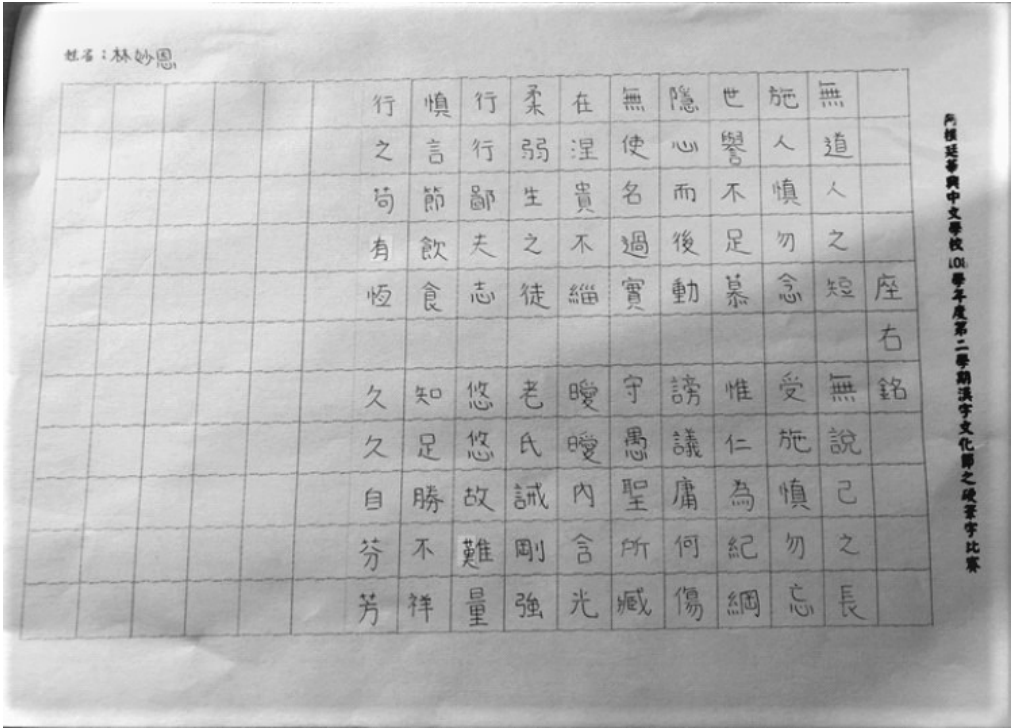 阿根廷華興中文學校101學年度第二學期漢字文化節之硬筆字比賽
姓名：林妙恩
座右銘
無道人之短 無說己之長
施人慎勿念 受施慎勿忘
世譽不足慕 惟仁為紀綱
隱心而後動 謗議庸何傷
無使名過實 守愚聖所臧
在涅貴不緇 曖曖內含光
柔弱生之徒 老氏誡剛強
行行鄙夫志 悠悠故難量
慎言節飲食 知足勝不祥
行之苟有恆 久久自芬芳